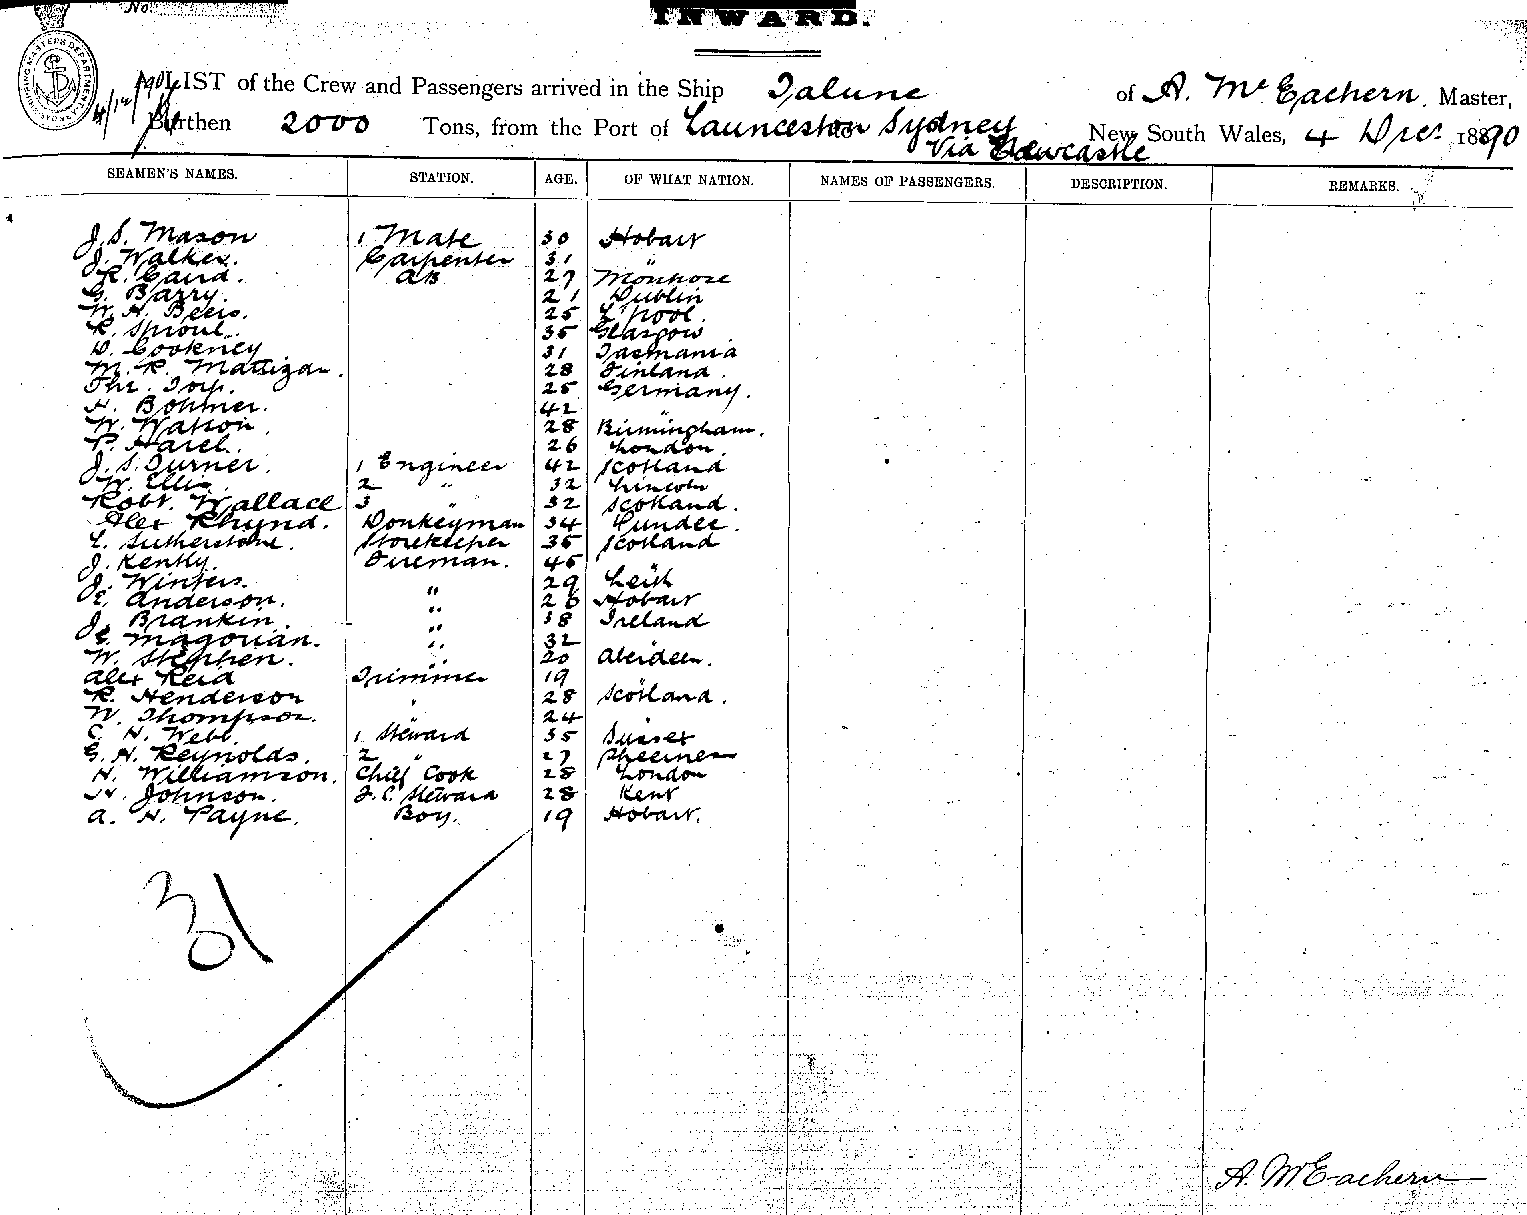 No.
INWARD.
LIST of the Crew and Passengers arrived in the Ship Talune of A. McEachern, Master,
Burthen 2000 Tons, from the Port of Launceston to Sydney New South Wales, 4 Decr 1890
Via Newcastle
SEAMEN'S NAMES. STATION. AGE. OF WHAT NATION. NAMES OF PASSENGERS. DESCRIPTION. REMARKS.
J. S. Mason 1 Mate 30 Hobart
J. Walker. Carpenter 31 "
R. Caird. AB 27 Montrose
G. Barry. 21 Dublin
W. H. Beers. 25 L'pool.
R. Sproul. 35 Glasgow
D. Cookney 31 Tasmania
M. R. 28 Finland.
25 Germany.
H. Bohmer. 42 "
W. Watson 28 Birmingham.
P. Harel. 26 London.
J. S. Turner. 1 Engineer 42 Scotland
W. Ellis 2 " 32 Lincoln
Robt. Wallace 3 " 32 Scotland.
Alex Rhynd. Donkeyman 34 Dundee.
L. Storekeeper 35 Scotland
J. Kently. Fireman. 45 "
J. Winters. " 29 Leith
E. Anderson. " 26 Hobart
J. Brankin. " 38 Ireland
E. Magorian. " 32 "
W. Stephen. " 20 Aberdeen.
Alex Reid Trimmer 19 "
R. Henderson " 28 Scotland.
W. Thompson. " 24 "
C. H. Webb 1. Steward 35 Sussex
G. H. Reynolds. 2 " 27 Sheerness
H. Williamson. Chief Cook 28 London
H. Johnson. F. C. Steward 28 Kent
A. H. Payne. Boy. 19 Hobart.
31
A. McEachern